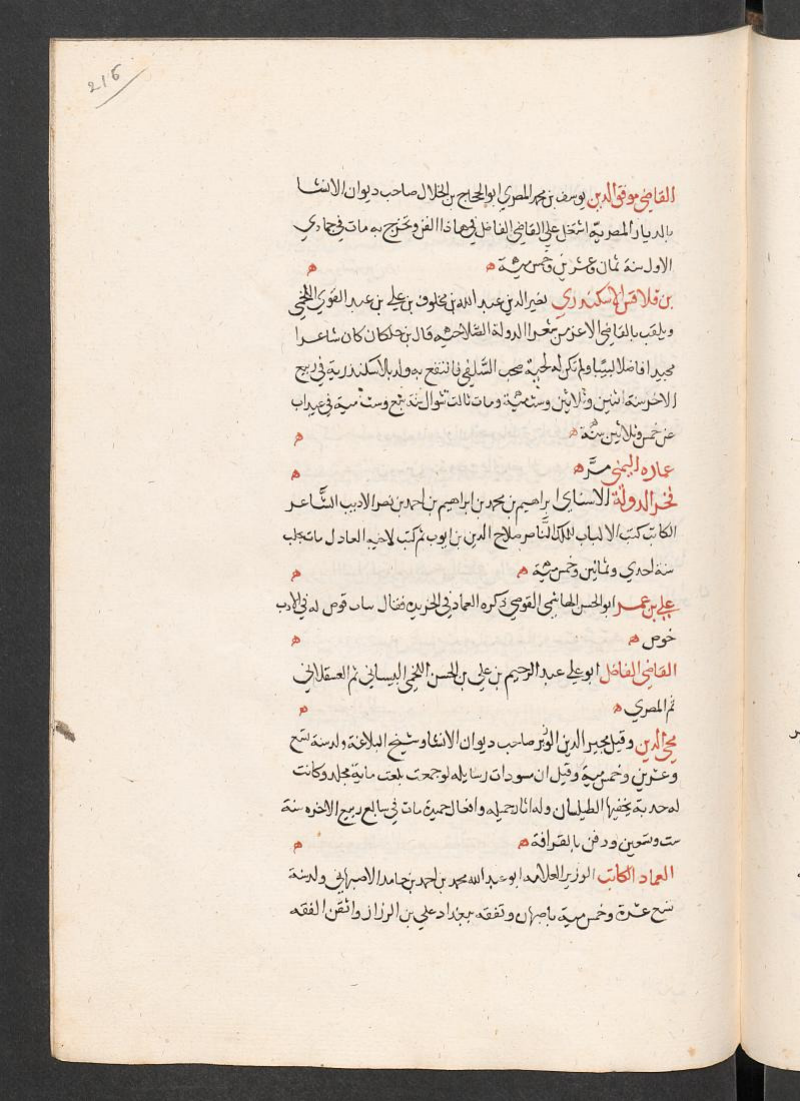 216
القاضي موفق الدين يوسف بن محمد المصري ابو الحجاج بن الخلال صاحب ديوان الانشا
بالديار المصرية اشتغل علي القاضي الفاضل في هاذا الفن وتخرج به مات في جمادي
الاول سنة ثمان وعشرين وخمس مئة ه ه
بن قلاقس الاسكندري نصير الدين عبد الله بن مخلوف بن علي بن عبد القوي اللخمي
ويلقب بالقاضي الاعز من شعرا الدولة الصلاحية قال بن خلكان كان شاعرا
مجيدا فاضلا لبيبا ولم تكن له لحية صحب السلفي فانتفع به ولد بالاسكندرية في ربيع
الاخر سنة اثنين وثلاثين وست مئة ومات ثالث شوال سنة سبع وست مية في عيداب
عن خمس وثلاثين سنة ه ه
عماره اليمني مر ه ه
فخر الدولة الاسناي ابراهيم بن محمد بن ابراهيم بن احمد بن نصر الاديب الشاعر
الكاتب كتب الالباب للملك الناصر صلاح الدين بن ايوب ثم كتب لاخيه العادل مات بحلب
سنة احدي وثمانين وخمس مئة ه ه
علي بن عمر ابو الحسن الهاشمي القوصي ذكره العماد في الخريدة فقال ساب قوص له في الادب
خوص ه ه
القاضي الفاضل ابو علي عبد الرحيم بن علي بن الحسن اللخمي البيساني ثم العسقلاني
ثم المصري ه ه
محي الدين وقيل مجير الدين الوزير صاحب ديوان الانشا وشيخ البلاغة ولد سنة تسع
وعشرين وخمس مية وقيل ان مسودات رسايله لو جمعت بلغت ماية مجلد وكانت
له حدبة يخفيها الطيلسان وله اثار جميله وافعال حميدة مات في سابع ربيع الاخره سنة
ست وتسعين ودفن بالقرافة ه ه
العماد الكاتب الوزير العلامه ابو عبد الله محمد بن احمد بن حامد الاصبهاني ولد سنة
تسع عشرة وخمس مية باصبهان وتفقه ببغداد علي بن الرزاز واتقن الفقه